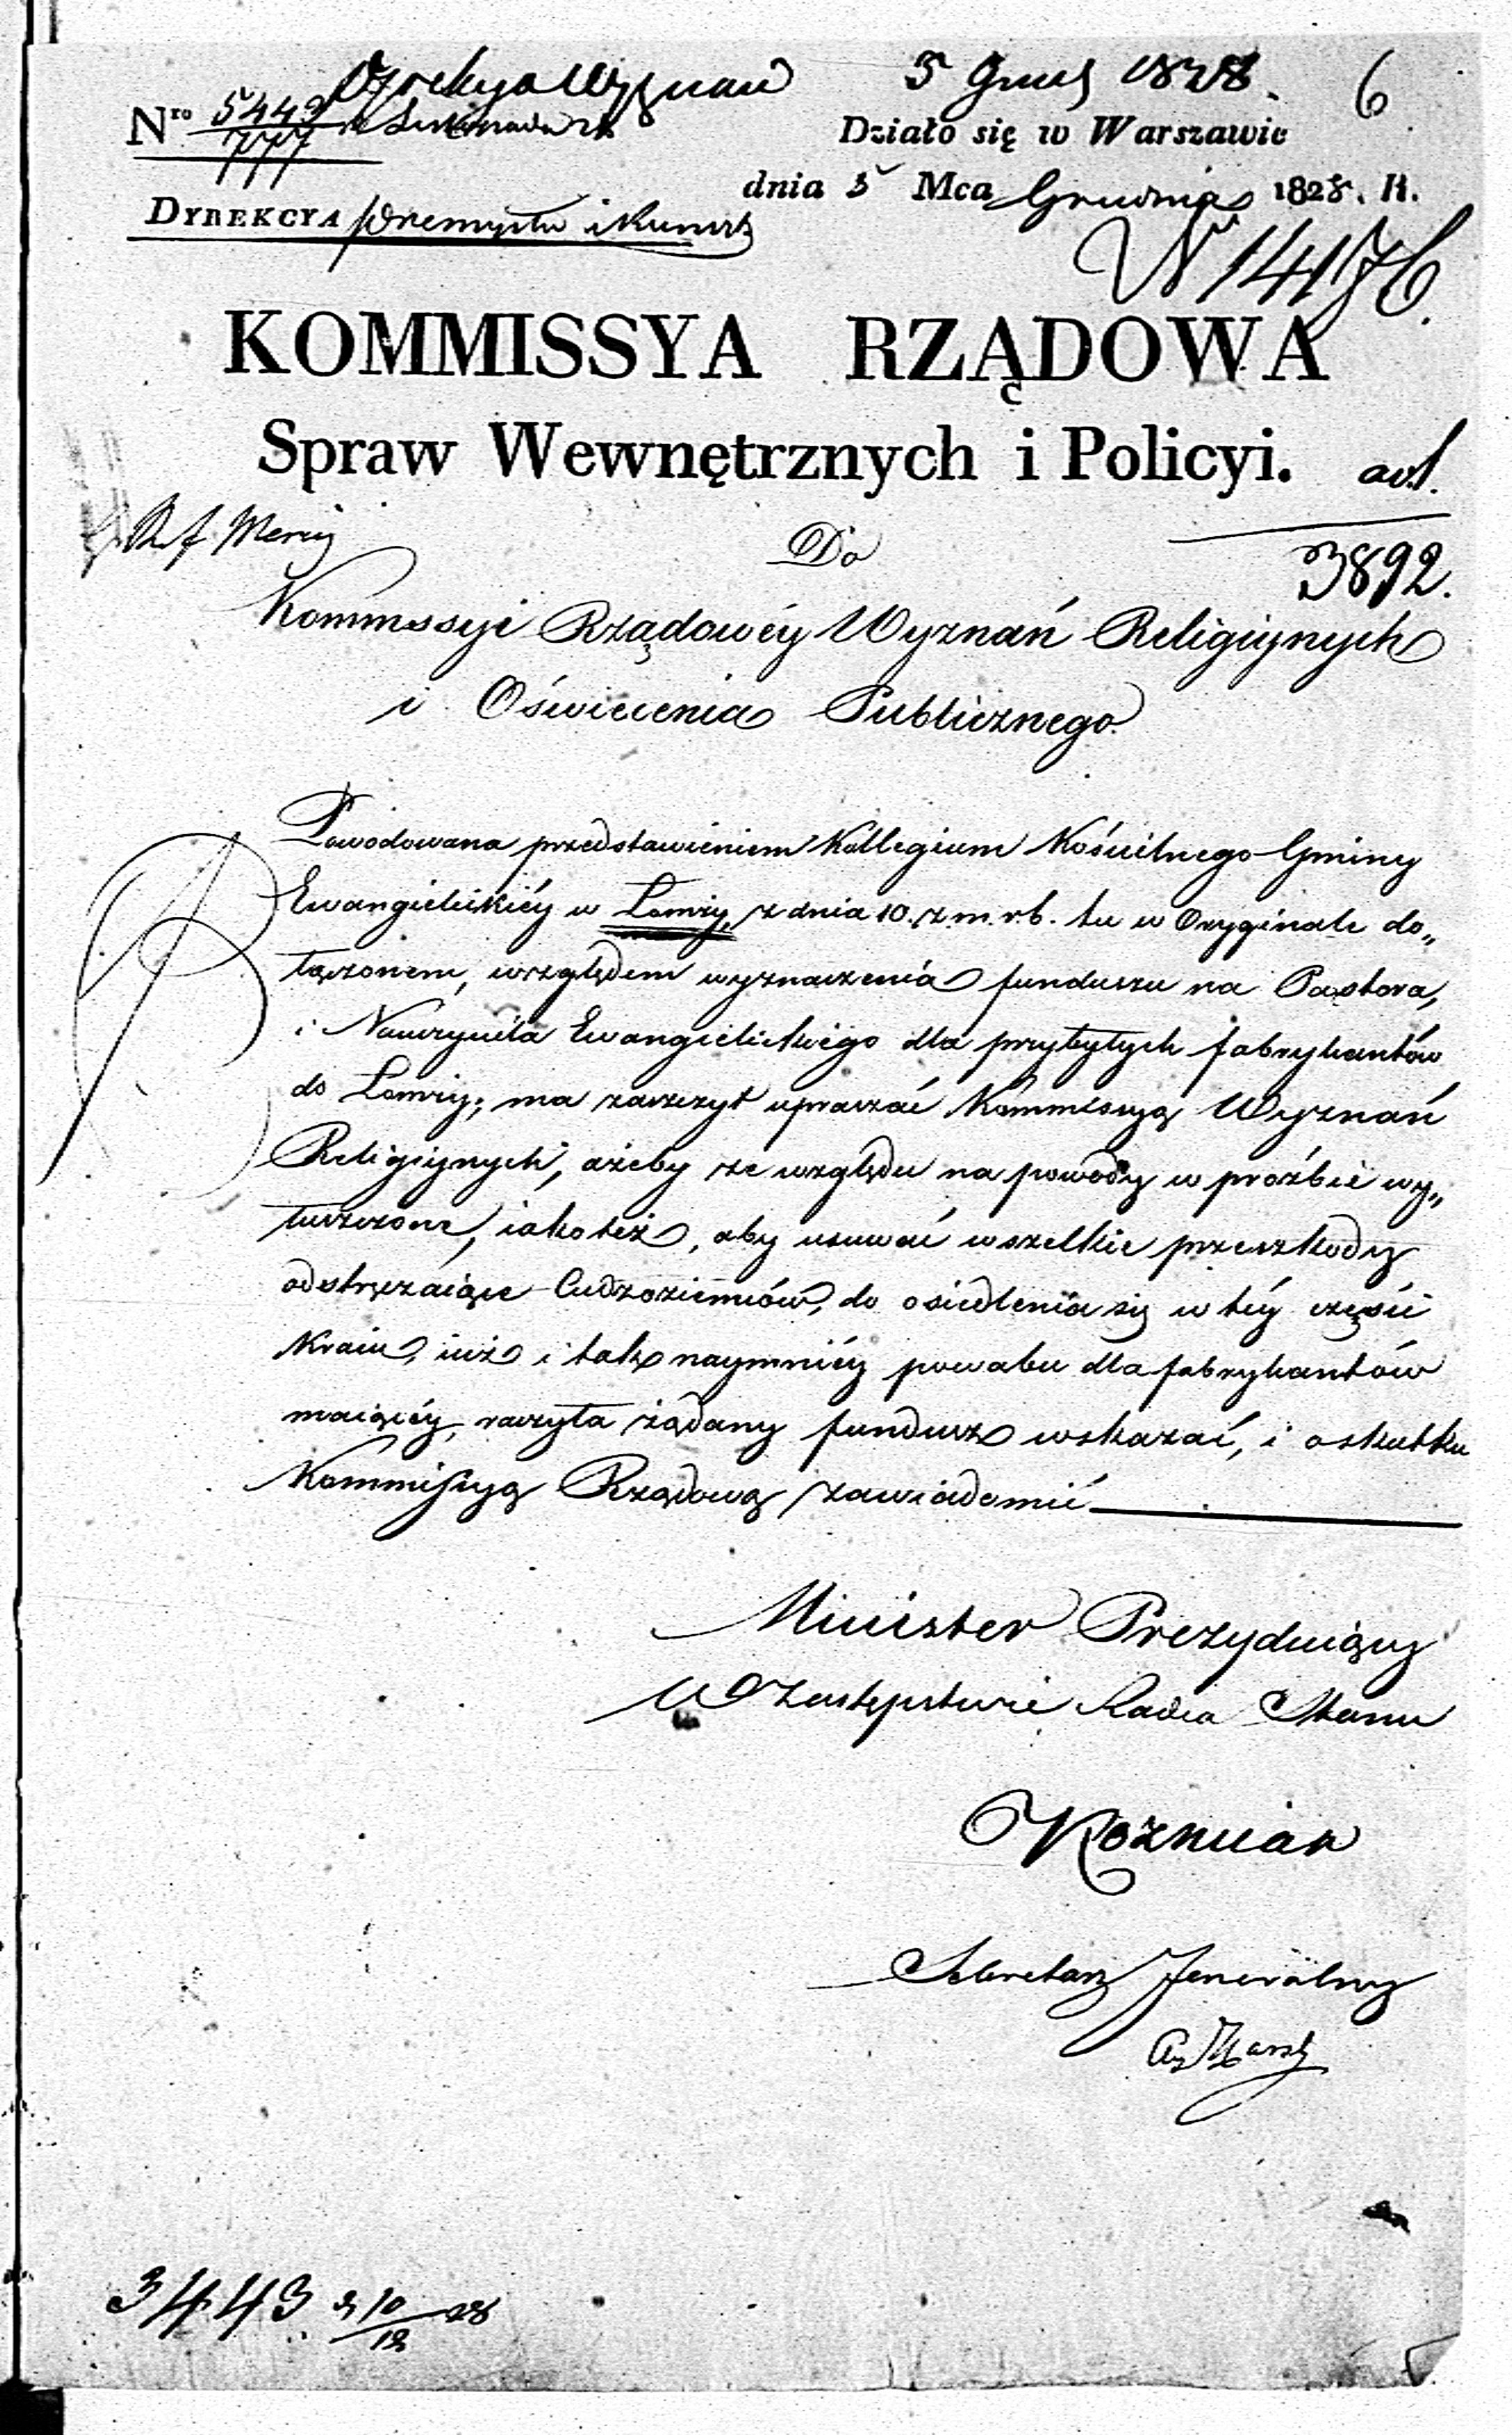 Dyrekcya Wyznań 5 Grud 1828. 6
Nro 5442/777
Działo się w Warszawie
dnia 5 Mca Grudnia 1828. R.
DYREKCYA Przemysłu i Kunszt
N 14176.
KOMMISSYA RZĄDOWA
Spraw Wewnętrznych i Policyi.
ad 1.
3892.
Do
Kommissyi Rządowéy Wyznań Religiynych
i Oświecenia Publicznego.
Powodowana przedstawieniem Kollegium Kościelnego Gminy
Ewangelickiéy w Łomży, z dnia 10. z. m. r. b. tu w Oryginale do„
łączonem, względem wyznaczenia funduszu na Pastora,
i Nauczyciela Ewangielickiego dla przybyłych fabrykantów
do Łomży; ma zaszczyt upraszać Kommissyą Wyznań
Religiynych, ażeby ze względu na powody w proźbie wy„
łuszczone, iako też, aby usuwać wszelkie przeszkody
odstręczaiące Cudzoziemców, do osiedlenia się w téy części
Kraiu, iuż i tak naymniéy powabu dla fabrykantów
maiącéy, raczyła żądany fundusz wskazać, i o skutku
Kommissyą Rządową zawiadomić
Minister Prezyduiący
W Zastępstwie Radca Stanu
Koźmian
Sekretarz Jeneralny
3443 10/12 28